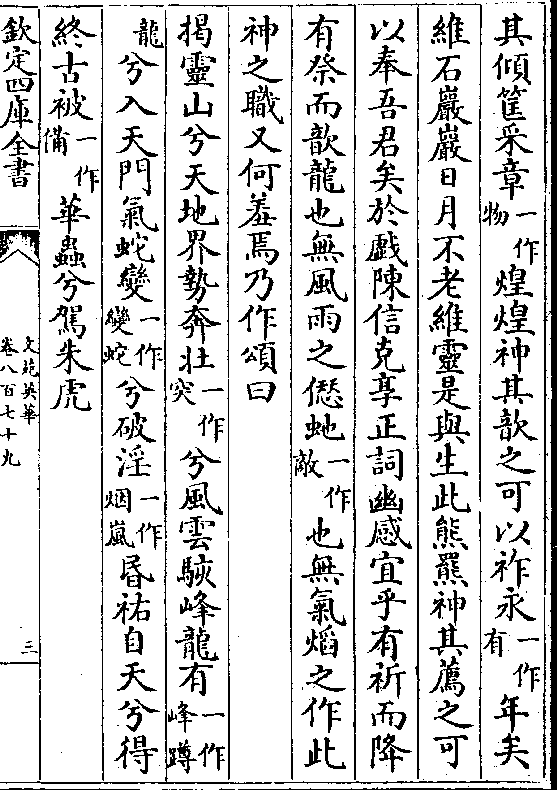 其傾筐采章一作物煌煌神其歆之可以祚永一作有年矣
維石巖巖日月不老維靈是與生此熊羆神其薦之可
以奉吾君矣於戲陳信克享正詞幽感宜乎有祈而降
有祭而歆龍也無風雨之愆虵一作敵也無氣熖之作此
神之職又何羞焉乃作頌曰
揭靈山兮天地界勢奔壯一作突兮風雲駭峰龍有一作峰蹲
龍兮入天門氣蛇變一作變蛇兮破淫一作烟嵐昬祐自天兮得
終古被一作備華蟲兮駕朱虎
欽定四庫全書
文苑英華
卷八百七十九
三